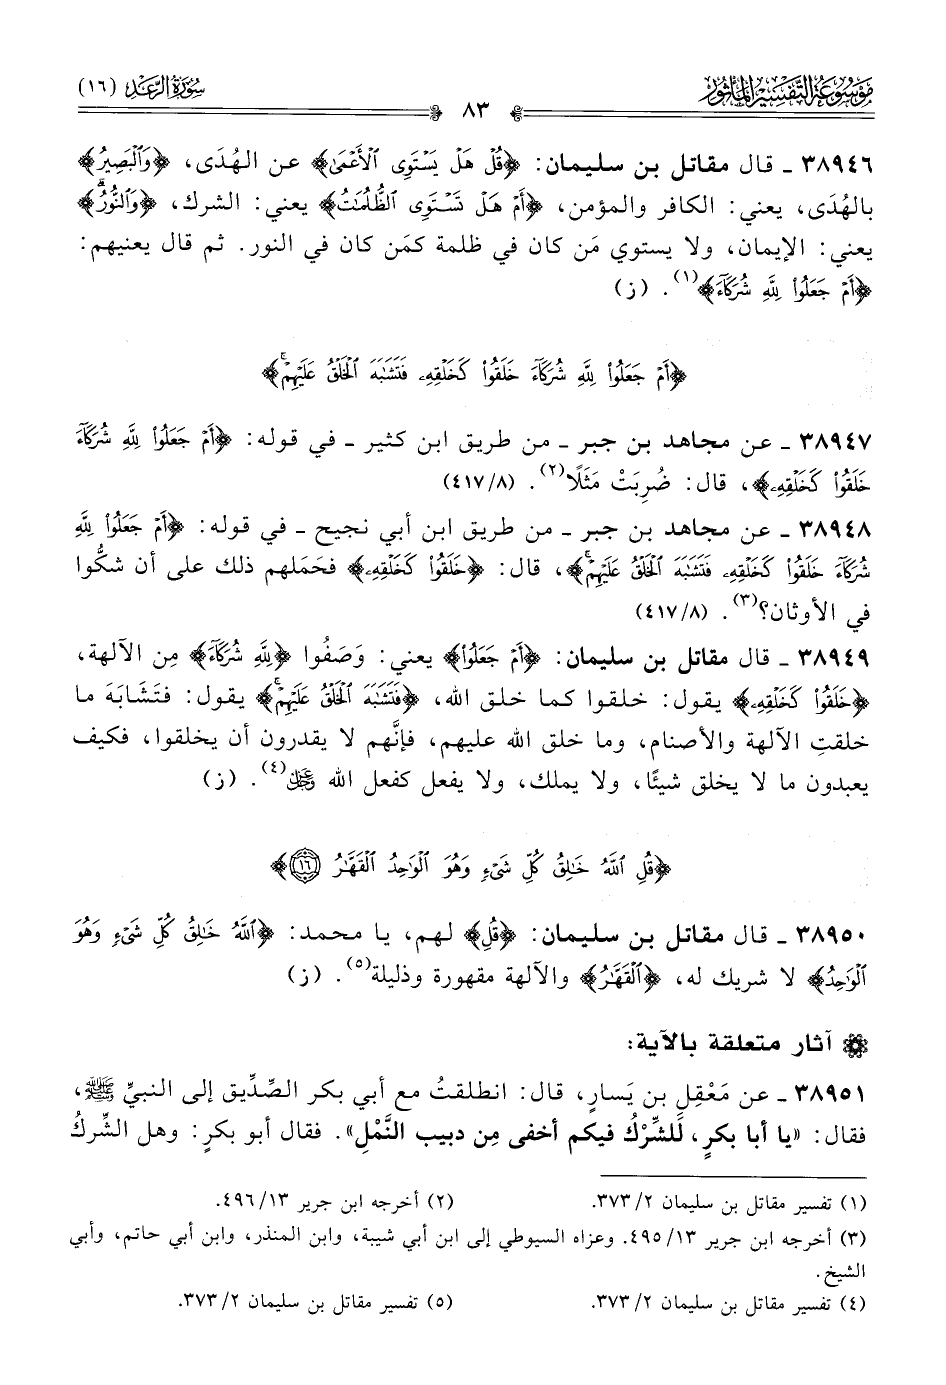 موسوعة التفسير المأثور
سورة الرعد (١٦)
٨٣
٣٨٩٤٦ ـ قال مقاتل بن سليمان: ﴿قُلْ هَلْ يَسْتَوِى ٱلْأَعْمَىٰ﴾ عن الهُدَى، ﴿وَٱلْبَصِيرُ﴾
بالهُدَى، يعني: الكافر والمؤمن، ﴿أَمْ هَلْ تَسْتَوِى ٱلظُّلُمَٰتُ﴾ يعني: الشرك، ﴿وَٱلنُّورُۗ﴾
يعني: الإيمان، ولا يستوي مَن كان في ظلمة كمَن كان في النور. ثم قال يعنيهم:
﴿أَمْ جَعَلُوا۟ لِلَّهِ شُرَكَآءَ﴾(١). (ز)
﴿أَمْ جَعَلُوا۟ لِلَّهِ شُرَكَآءَ خَلَقُوا۟ كَخَلْقِهِۦ فَتَشَٰبَهَ ٱلْخَلْقُ عَلَيْهِمْۚ﴾
٣٨٩٤٧ ـ عن مجاهد بن جبر ـ من طريق ابن كثير ـ في قوله: ﴿أَمْ جَعَلُوا۟ لِلَّهِ شُرَكَآءَ
خَلَقُوا۟ كَخَلْقِهِۦ﴾، قال: ضُرِبَتْ مَثَلًا(٢). (٤١٧/٨)
٣٨٩٤٨ ـ عن مجاهد بن جبر ـ من طريق ابن أبي نجيح ـ في قوله: ﴿أَمْ جَعَلُوا۟ لِلَّهِ
شُرَكَآءَ خَلَقُوا۟ كَخَلْقِهِۦ فَتَشَٰبَهَ ٱلْخَلْقُ عَلَيْهِمْۚ﴾، قال: ﴿خَلَقُوا۟ كَخَلْقِهِۦ﴾ فحَمَلهم ذلك على أن شكُّوا
في الأوثان؟(٣). (٤١٧/٨)
٣٨٩٤٩ ـ قال مقاتل بن سليمان: ﴿أَمْ جَعَلُوا۟﴾ يعني: وَصَفُوا ﴿لِلَّهِ شُرَكَآءَ﴾ مِن الآلهة،
﴿خَلَقُوا۟ كَخَلْقِهِۦ﴾ يقول: خلقوا كما خلق الله، ﴿فَتَشَٰبَهَ ٱلْخَلْقُ عَلَيْهِمْۚ﴾ يقول: فتَشابَهَ ما
خلقتِ الآلهة والأصنام، وما خلق الله عليهم، فإنَّهم لا يقدرون أن يخلقوا، فكيف
يعبدون ما لا يخلق شيئًا، ولا يملك، ولا يفعل كفعل الله عز وجل(٤). (ز)
﴿قُلِ ٱللَّهُ خَٰلِقُ كُلِّ شَىْءٍ وَهُوَ ٱلْوَٰحِدُ ٱلْقَهَّٰرُ ١٦﴾
٣٨٩٥٠ ـ قال مقاتل بن سليمان: ﴿قُلِ﴾ لهم، يا محمد: ﴿ٱللَّهُ خَٰلِقُ كُلِّ شَىْءٍ وَهُوَ
ٱلْوَٰحِدُ﴾ لا شريك له، ﴿ٱلْقَهَّٰرُ﴾ والآلهة مقهورة وذليلة(٥). (ز)
آثار متعلقة بالآية:
٣٨٩٥١ ـ عن مَعْقِلِ بن يَسارٍ، قال: انطلقتُ مع أبي بكر الصِّدِّيق إلى النبيِّ ﷺ،
فقال: «يا أبا بكرٍ، لَلشِّرْكُ فيكم أخفى مِن دبيب النَّمْلِ». فقال أبو بكرٍ: وهل الشركُ
(١) تفسير مقاتل بن سليمان ٢/ ٣٧٣.
(٢) أخرجه ابن جرير ١٣/ ٤٩٦.
(٣) أخرجه ابن جرير ١٣/ ٤٩٥. وعزاه السيوطي إلى ابن أبي شيبة، وابن المنذر، وابن أبي حاتم، وأبي
الشيخ.
(٤) تفسير مقاتل بن سليمان ٢/ ٣٧٣.
(٥) تفسير مقاتل بن سليمان ٢/ ٣٧٣.